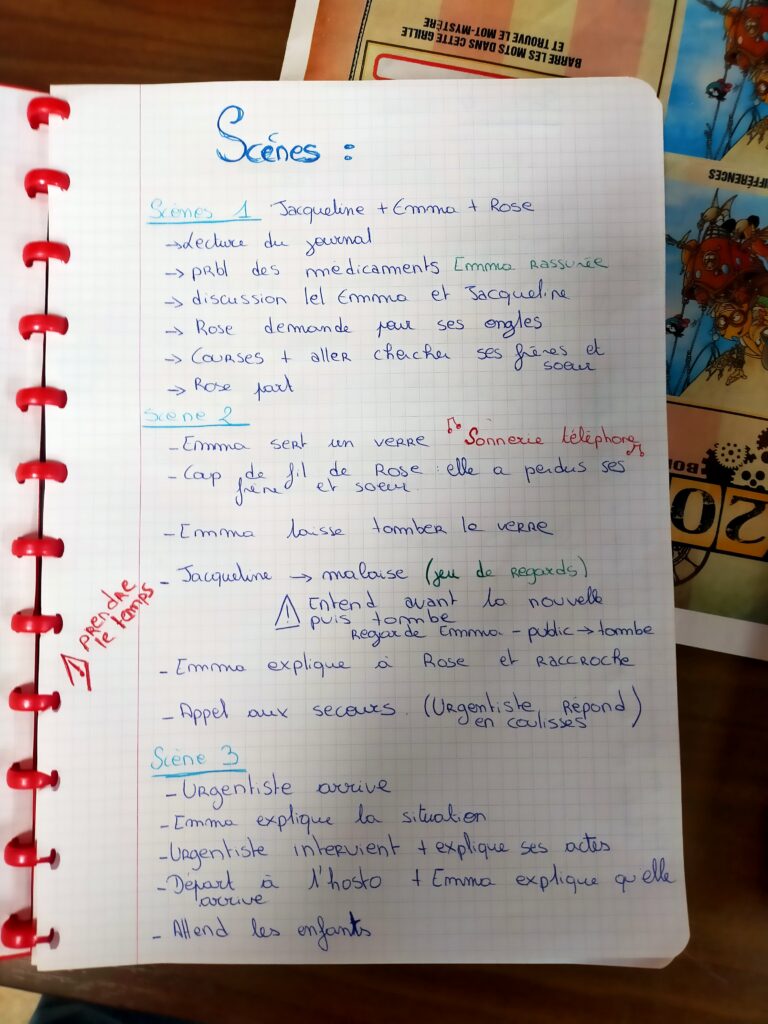 BARRE LES MOTS DANS CETTE GRILLE
ET TROUVE LE MOT-MYSTÈRE
Scénes :
Scènes 1 Jacqueline + Emma + Rose
→ Lecture du journal
→ prbl des médicaments Emma rassurée
→ discussion
Emma et Jacqueline
→ Rose demande pour ses ongles
→ Courses + aller chercher ses frères et
soeur
→ Rose part
Scène 2
- Emma sert un verre ♫ Sonnerie téléphone ♫
- Coup de fil de Rose : elle a perdus ses
frère et soeur.
- Emma laisse tomber le verre
- Jacqueline → malaise (jeu de regards)
⚠ Entend avant la nouvelle
puis tombe
Regarde Emma - public → tombe
⚠ PRENDRE
le temps
- Emma explique à Rose et raccroche
- Appel aux secours. (Urgentiste répond)
en coulisses
Scène 3
- Urgentiste arrive
- Emma explique la situation
- Urgentiste intervient + explique ses actes
- Départ à l'hosto + Emma explique qu'elle
arrive
- Attend les enfants
20